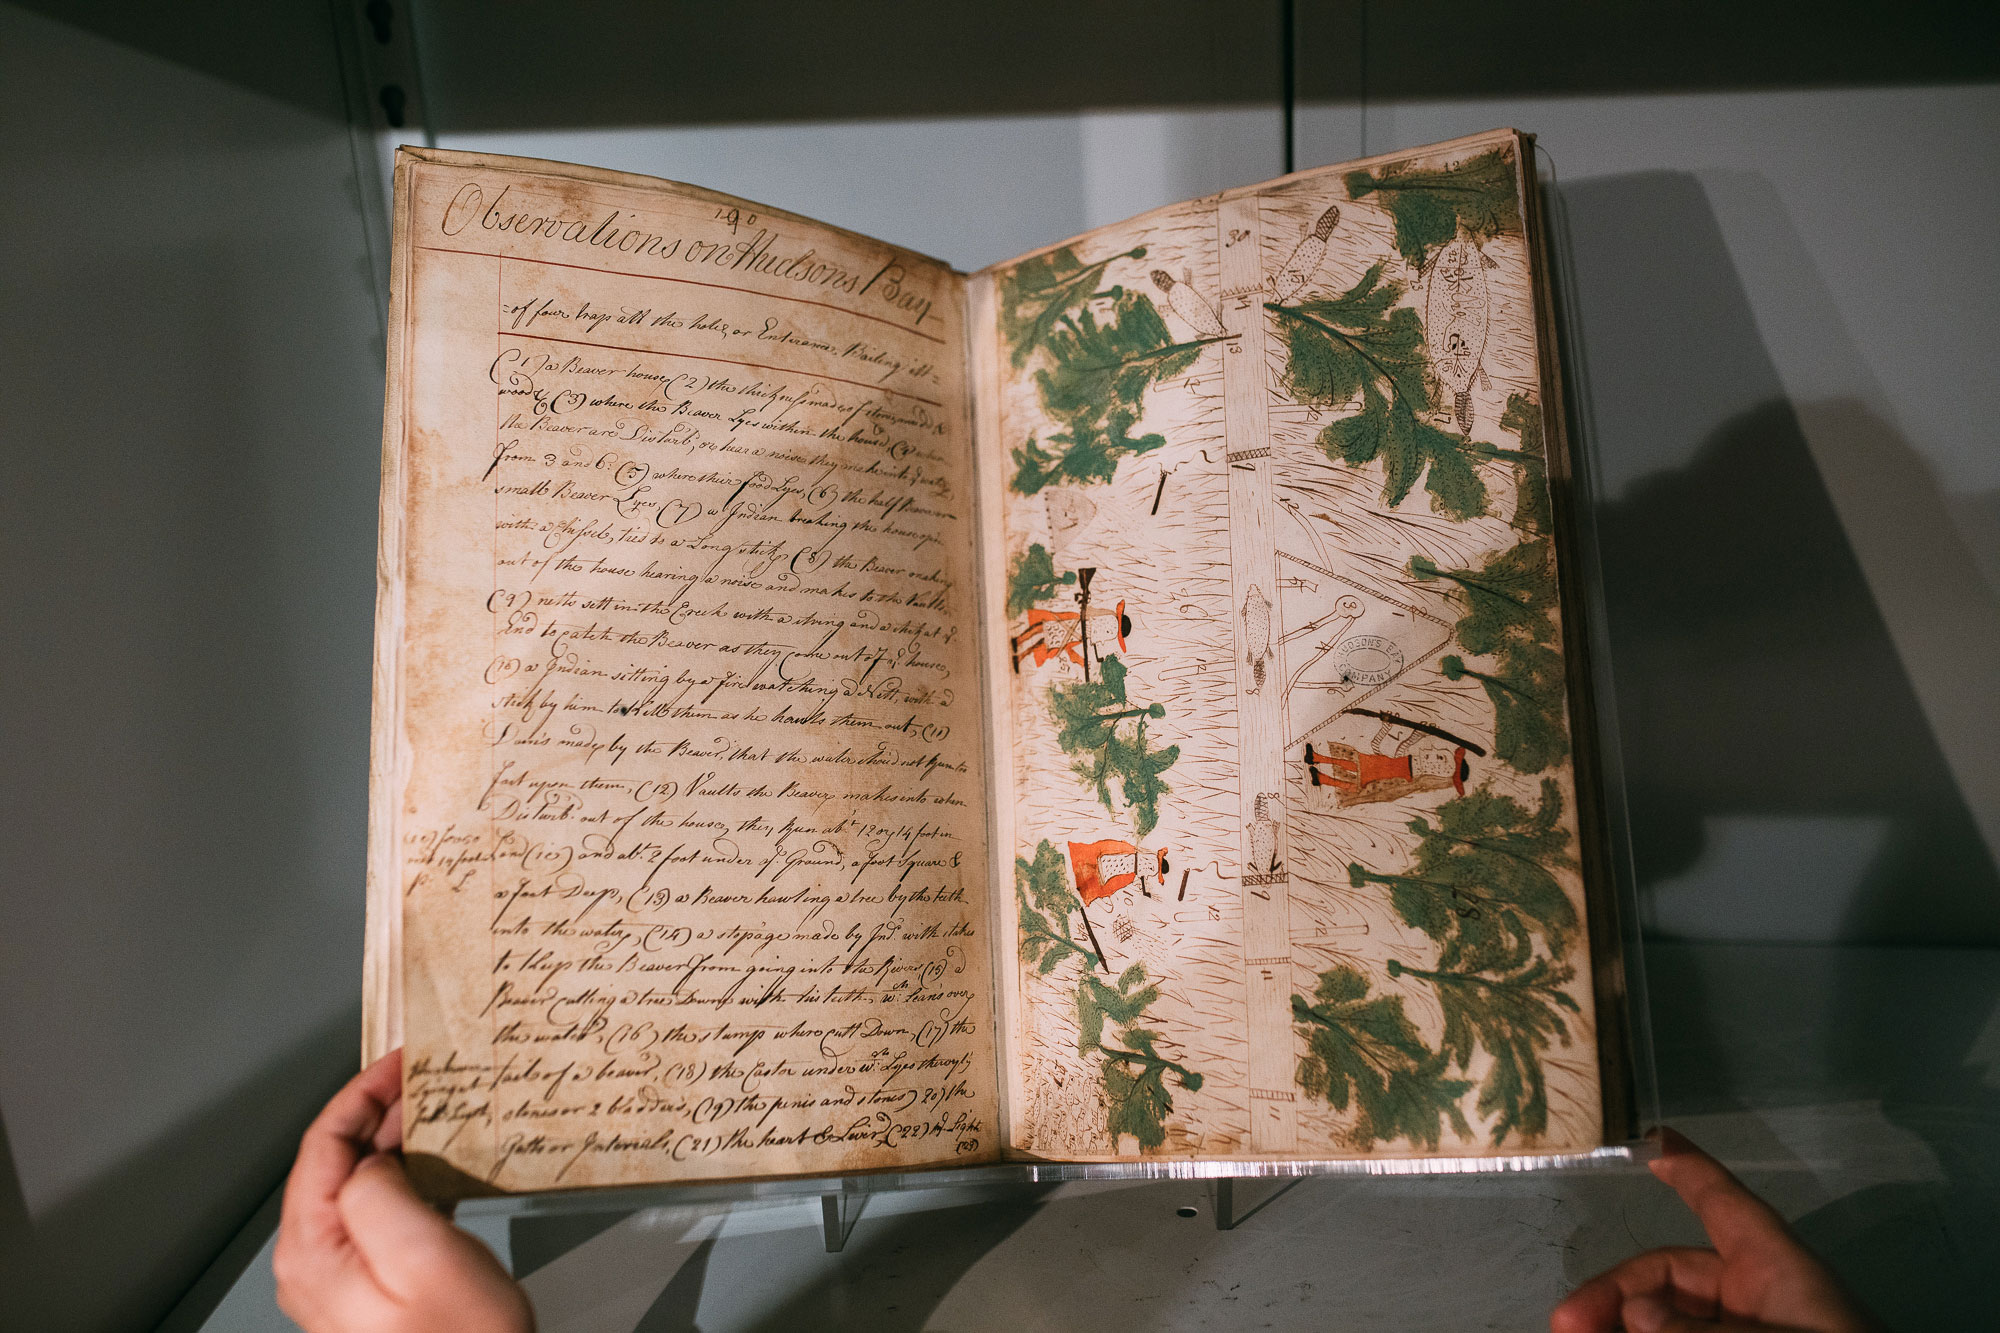 190
Observations on Hudsons Bay
=of four trap att the holes, or Enterance, Baiting itt=
(1) a Beaver house, (2) the thickness made of stones, mudd &
wood &c (3) where the Beaver Lyes within the house, (4) when
the Beaver are Disturb'd, or hear a noise they make into ye water,
from 3 and 6: (5) where their food Lyes, (6) the half Beaver or
small Beaver Lyes, (7) a Indian breaking the house open
with a Chissel, tied to a Long stick, (8) the Beaver making
out of the house hearing a noise and makes to the Vaults,
(9) netts sett in the Creek with a string and a stick att ye
End to catch the Beaver as they come out of ye house,
(10) a Indian sitting by a fire watching a Nett, with a
stick by him to kill them as he hawls them out, (11)
Dam's made by the Beaver, that the water should not Run too
fast upon them, (12) Vaults the Beaver makes into when
Disturb'd out of the house, they Run abt 12 or 14 foot in
and and abt 2 foot under ye Ground, a foot Square &
a foot Deep, (13) a Beaver hawling a tree by the teeth
into the water, (14) a stopage made by Ind. with stakes
to keep the Beaver from going into the Rivers (15) a
Beaver cutting a tree Down with his teeth, wch Lean's over
the water, (16) the stump where cutt Down, (17) the
tail of a beaver, (18) the Castor under wch Lyes the oyly
stones or 2 bladders, (19) the penis and stones, 20) the
Gutts or Materials, (21) the heart & Liver, (22) ye Light
(23)
30
12
13
17
9
12
26
3
4
5
1
8
7
HUDSON'S BAY
COMPANY
10
12
9
28
11
11
27